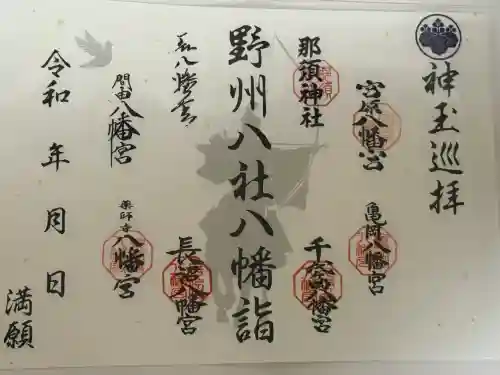 神玉巡拝
宮原八幡宮
亀岡八幡宮
那須神社
千歳八幡宮
野州八社八幡詣
八幡宮
長沼八幡宮
間々田八幡宮
薬師寺八幡宮
令和 年 月 日
満願